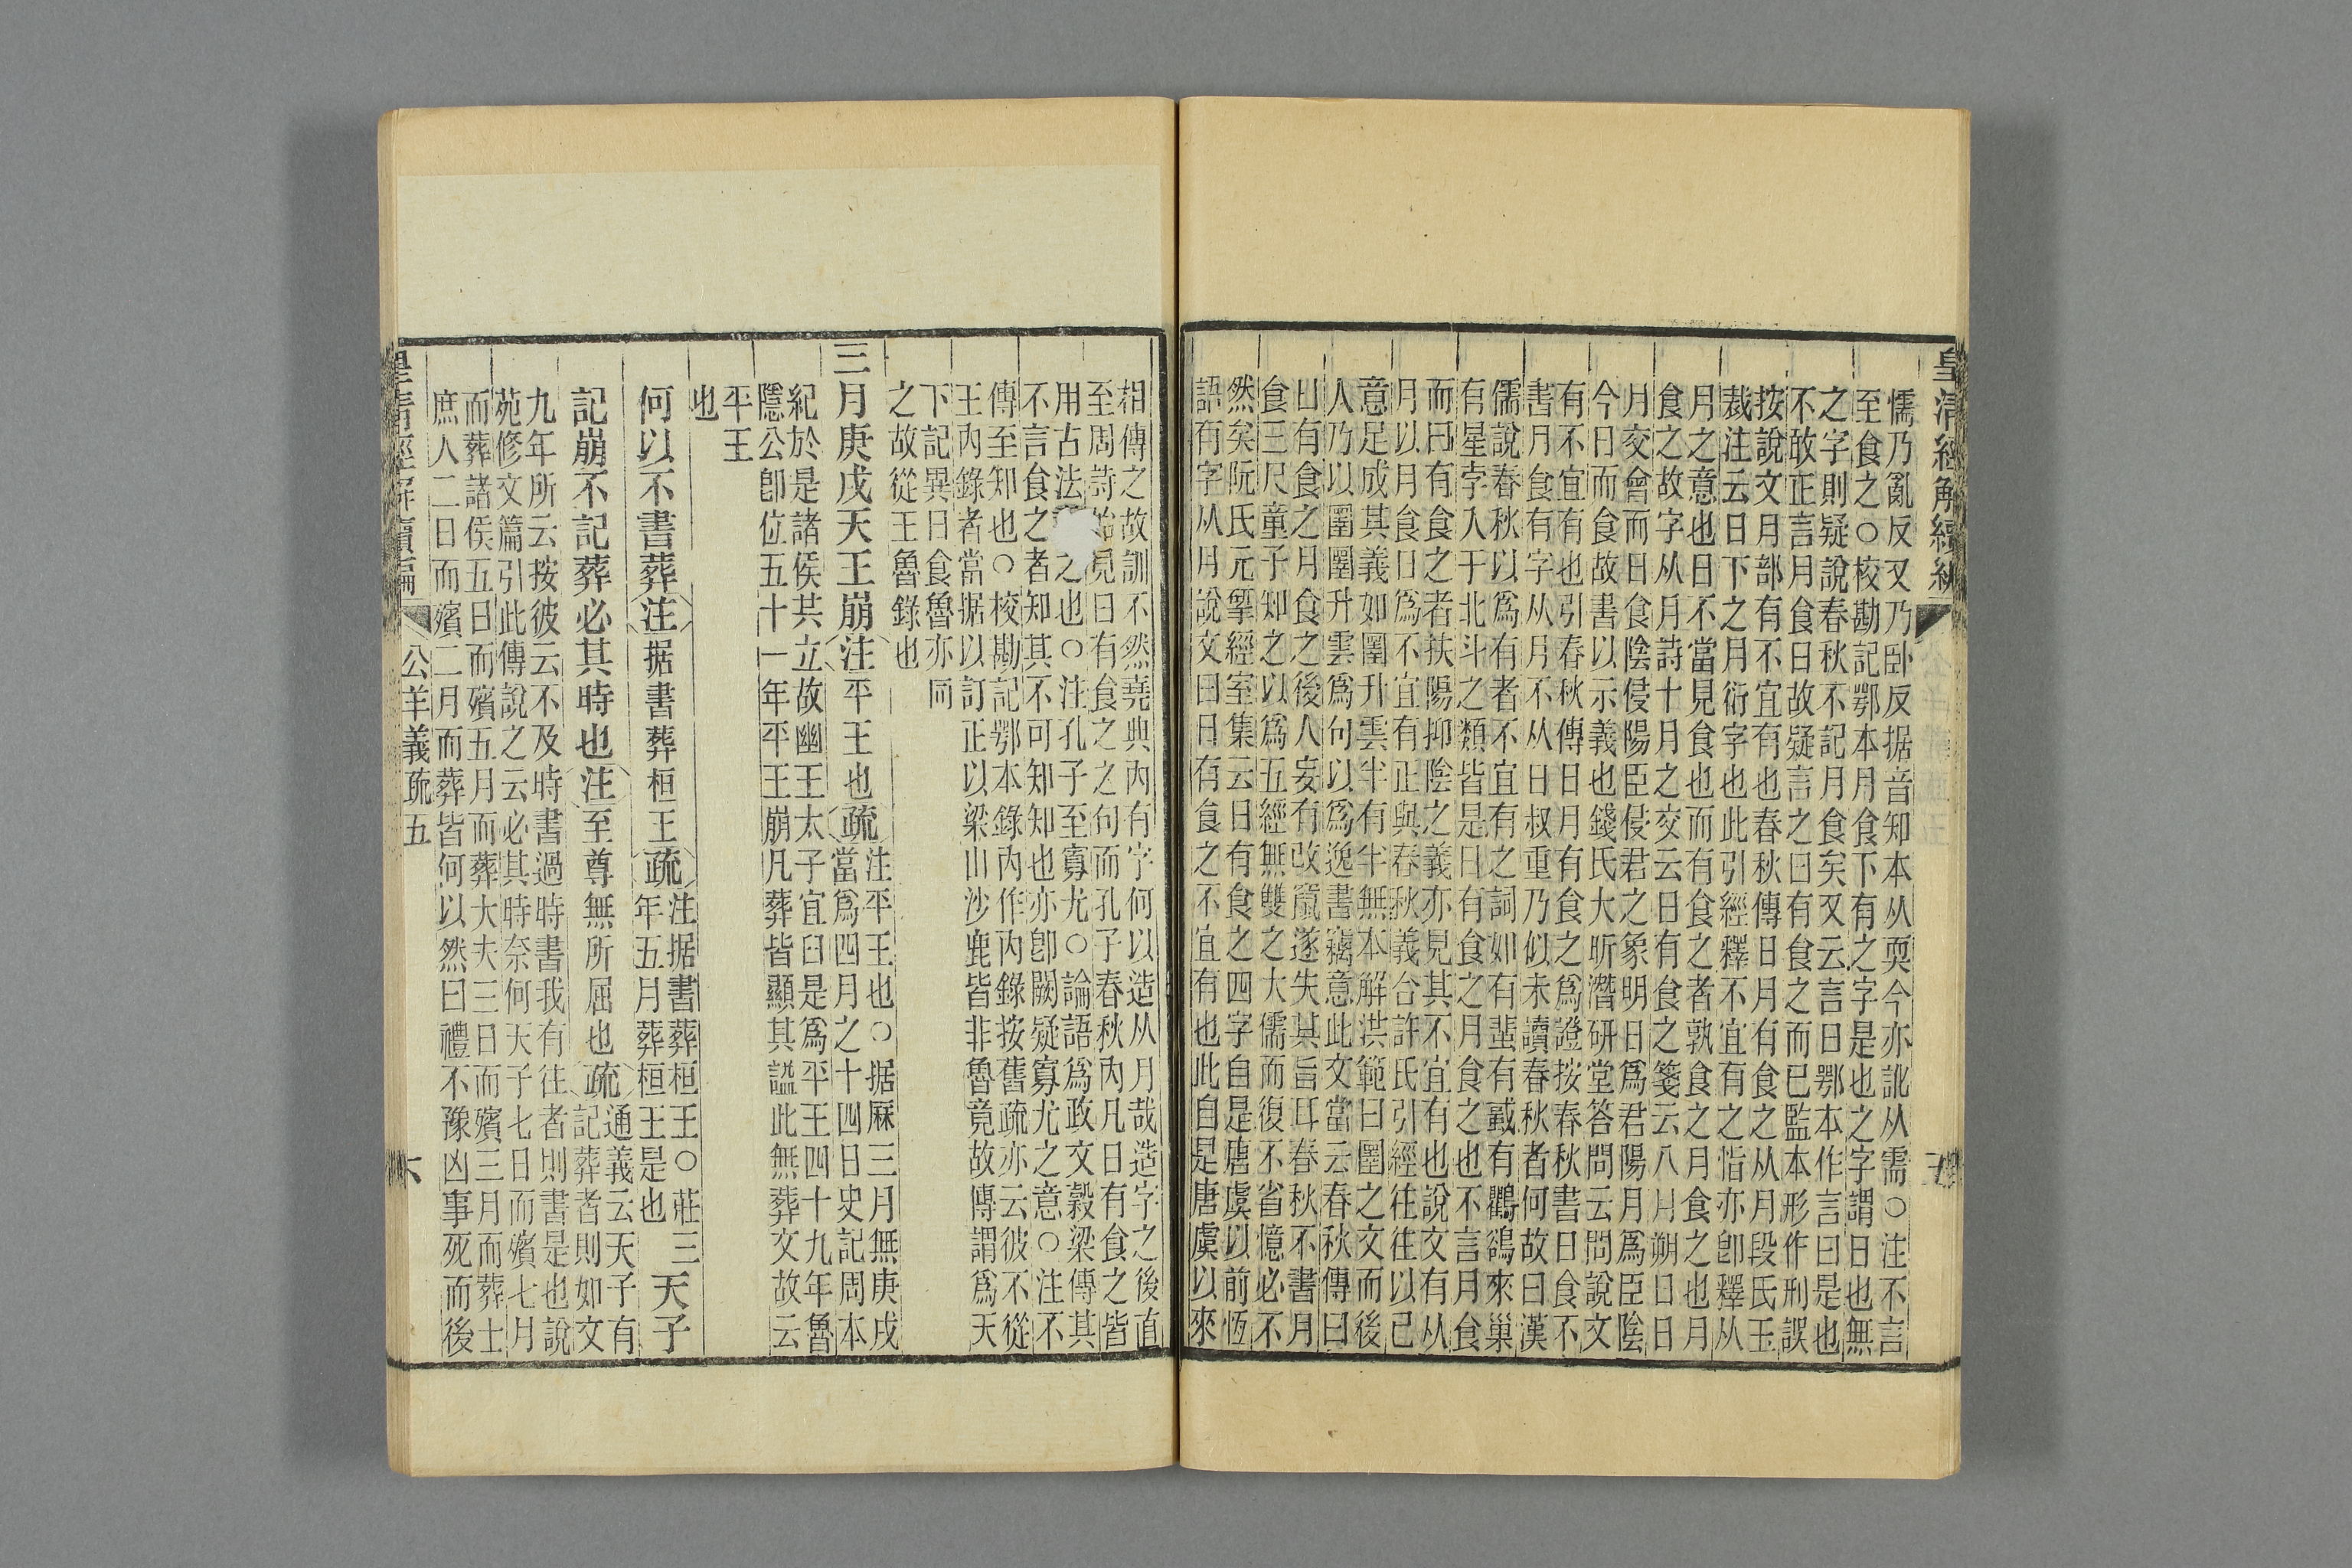 皇清經解續編
懦乃亂反又乃卧反据音知本从耎今亦訛从需○注不言
至食之○校勘記鄂本月食下有之字是也之字謂日也無
之字則疑說春秋不記月食矣又云言日鄂本作言曰是也
不敢正言月食日故疑言之曰有食之而已監本形作刑誤
按說文月部有不宜有也春秋傳曰日月有食之从月段氏玉
裁注云日下之月衍字也此引經釋不宜有之恉亦卽釋从
月之意也日不當見食也而有食之者孰食之月食之也月
食之故字从月詩十月之交云日有食之箋云八月朔日日
月交會而日食陰侵陽臣侵君之象明日爲君陽月爲臣陰
今日而食故書以示義也錢氏大昕潛研堂答問云問說文
有不宜有也引春秋傳日月有食之爲證按春秋書日食不
書月食有字从月不从日叔重乃似未讀春秋者何故曰漢
儒說春秋以爲有者不宜有之詞如有蜚有蜮有鸛鵒來巢
有星孛入于北斗之類皆是日有食之月食之也不言月食
而曰有食之者扶陽抑陰之義亦見其不宜有也說文有从
月以月食日爲不宜有正與春秋義合許氏引經往往以已
意足成其義如圛升雲半有半無本解洪範曰圛之文而後
人乃以圛圛升雲爲句以爲逸書竊意此文當云春秋傳曰
日有食之月食之後人妄有改竄遂失其旨耳春秋不書月
食三尺童子知之以爲五經無雙之大儒而復不省憶必不
然矣阮氏元揅經室集云日有食之四字自是唐虞以前恆
語有字从月說文曰日有食之不宜有也此自是唐虞以來
相傳之故訓不然堯典內有字何以造从月哉造字之後直
至周詩始見日有食之之句而孔子春秋內凡日有食之皆
用古法之也○注孔子至寡尤○論語爲政文穀梁傳其
不言食之者知其不可知知也亦卽闕疑寡尤之意○注不
傳至知也○校勘記鄂本錄內作內錄按舊疏亦云彼不從
王內錄者當据以訂正以梁山沙鹿皆非魯竟故傳謂爲天
下記異日食魯亦同
之故從王魯錄也
三月庚戌天王崩注平王也疏注平王也○据厤三月無庚戌
當爲四月之十四日史記周本
紀於是諸侯共立故幽王太子宜臼是爲平王四十九年魯
隱公卽位五十一年平王崩凡葬皆顯其謚此無葬文故云
平王
也
何以不書葬注据書葬桓王疏注据書葬桓王○莊三
年五月葬桓王是也天子
記崩不記葬必其時也注至尊無所屈也疏通義云天子有
記葬者則如文
九年所云按彼云不及時書過時書我有往者則書是也說
苑修文篇引此傳說之云必其時奈何天子七日而殯七月
而葬諸侯五日而殯五月而葬大夫三日而殯三月而葬士
庶人二日而殯二月而葬皆何以然曰禮不豫凶事死而後
皇清經解續編 公羊義疏五 六